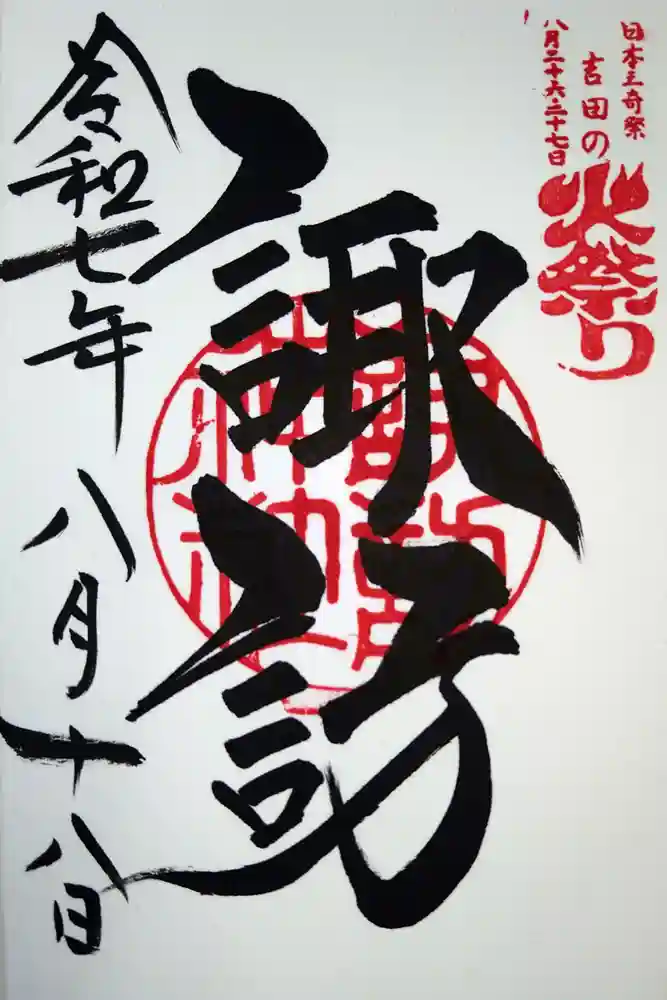 日本三奇祭
吉田の
火祭り
八月二十六二十七日
諏訪
諏訪神社
令和七年八月十八日